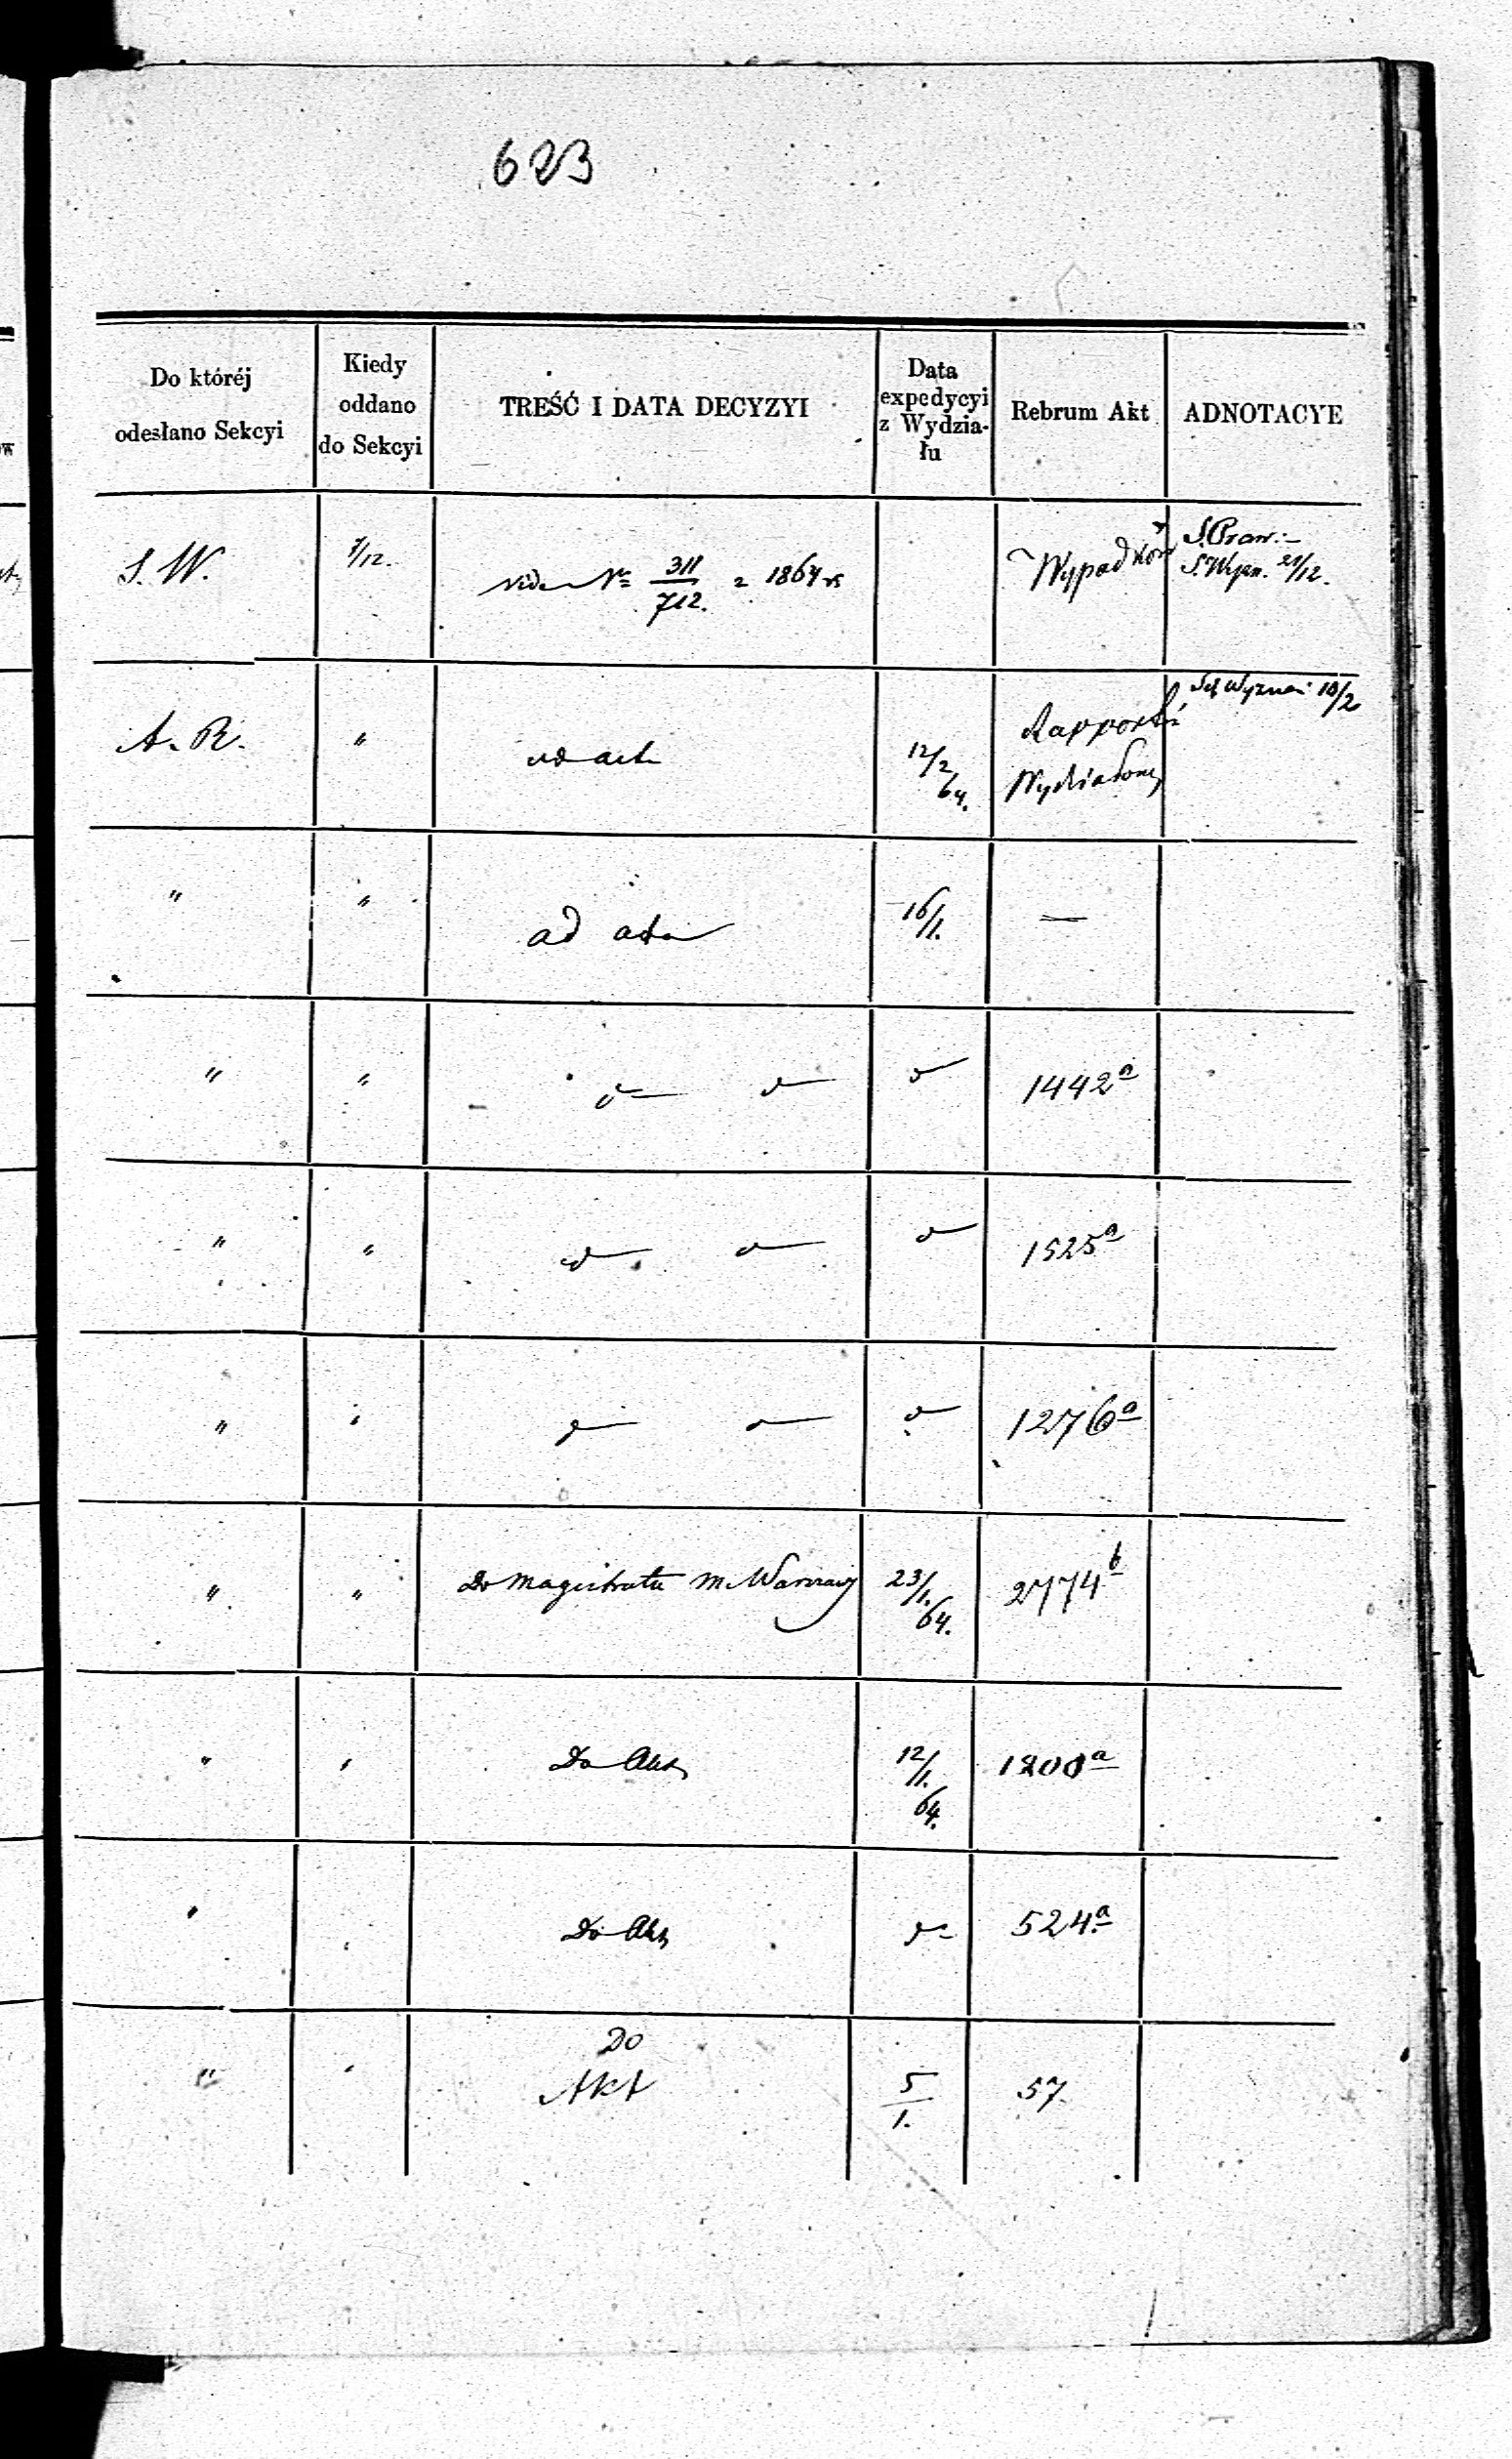 623
Do któréj
odesłano Sekcyi
Kiedy
oddano
do Sekcyi
TREŚĆ I DATA DECYZYI
Data
expedycyi
z Wydzia-
łu
Rebrum Akt
ADNOTACYE
S. W.
7/12.
vide № 311/712. z 1864 r.
Wypadków
S. Praw. -
21/12.
A. R.
"
ad acta
12/2 64.
Rapporta
10/2
"
"
ad acta
16/1.
—
"
"
1442 a
"
"
1525 a
"
"
1276 a
"
"
Do Magistratu m. Warszawy
23/1. 64.
2774 b
"
"
Do Akt
12/1. 64.
1200 a
"
"
Do Akt
524 a
"
"
Do
Akt
5/1.
57.